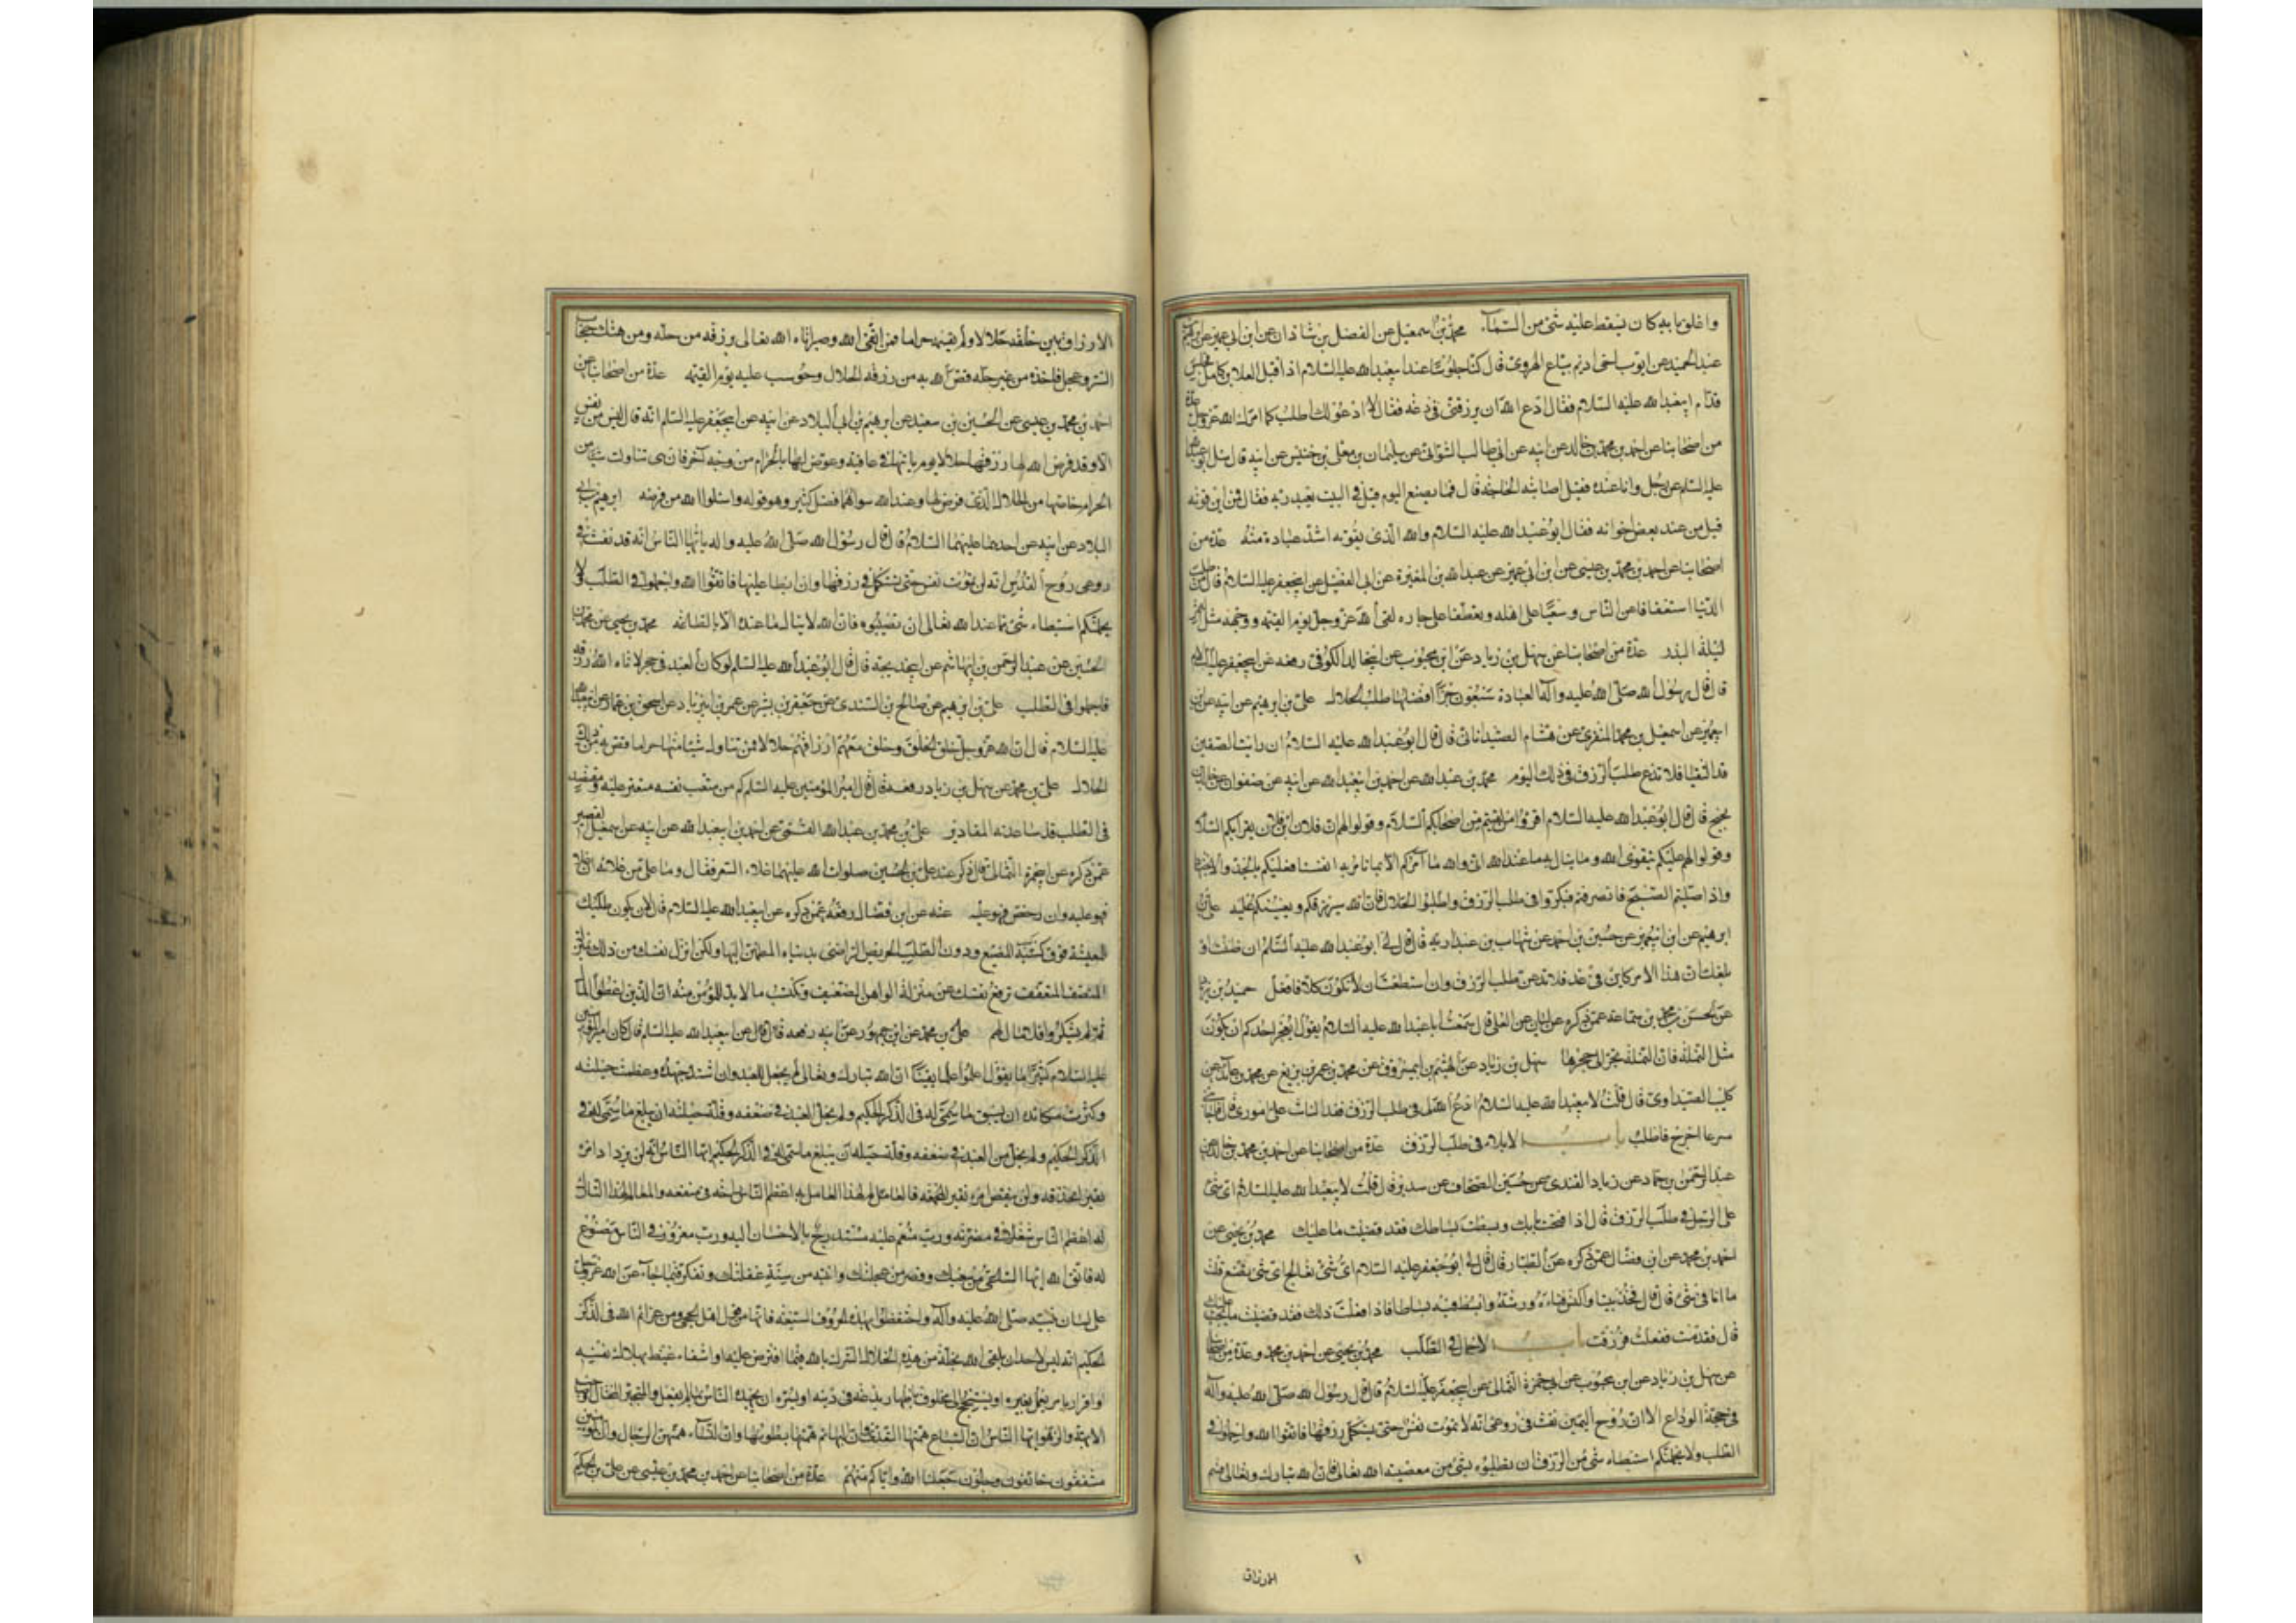 واغلق بابه كان يسقط عليه شئ من السماء محمد بن اسمعيل عن الفضل بن شاذان عن ابن ابي عمير عن ابرهيم بن
عبد الحميد عن ايوب اخي اديم بياع الهروي قال كنا جلوسا عند ابيعبد الله عليه السلام اذ اقبل العلا بن كامل فجلس
قدام ابيعبد الله عليه السلام فقال ادع الله ان يرزقني في دعة فقال لا ادعو لك اطلب كما امرك الله عز وجل عدة
من اصحابنا عن احمد بن محمد بن خالد عن ابيه عن ابي طالب الشعراني عن سليمان بن معلى بن خنيس عن ابيه قال سئل ابو عبد الله
عليه السلم عن رجل وانا عنده فقيل اصابته الحاجة قال فما يصنع اليوم قيل في البيت يعبد ربه فقال فمن اين قوته
قيل من عند بعض اخوانه فقال ابو عبد الله عليه السلام والله الذي يقوته اشد عبادة منه عدة من
اصحابنا عن احمد بن محمد بن عيسى عن ابن ابي عمير عن عبد الله بن المغيرة عن ابي الفضيل عن ابيجعفر عليه السلام قال من طلب
الدنيا استعفافا عن الناس وسعيا على اهله وتعطفا على جاره لقي الله عز وجل يوم القيمة ووجهه مثل القمر
ليلة البدر عدة من اصحابنا عن سهل بن زياد عن ابن محبوب عن ابيخالد الكوفي رفعه عن ابيجعفر عليه السلام
قال قال رسول الله صلى الله عليه وآله العبادة سبعون جزءا افضلها طلب الحلال علي بن ابرهيم عن ابيه عن ابن
ابيعمير عن اسمعيل بن محمد المنقري عن هشام الصيدناني قال قال ابو عبد الله عليه السلام ان رايت الصفين
قد التقيا فلا تدع طلب الرزق في ذلك اليوم محمد بن عبد الله عن احمد بن ابيعبد الله عن ابيه عن صفوان عن خالد بن
نجيح قال قال ابو عبد الله عليه السلام اقرؤا من لقيتم من اصحابكم السلام وقولوا لهم ان فلان بن فلان يقرأكم السلام
وقولوا لهم عليكم بتقوى الله وما ينال به ما عند الله اني والله ما آمركم الا بما نامر به انفسنا فعليكم بالجد والاجتهاد
واذا صليتم الصبح فانصرفتم فبكروا في طلب الرزق واطلبوا الحلال فان الله سيرزقكم ويعينكم عليه علي بن
ابرهيم عن ابن ابيعمير عن حسين بن احمد عن شهاب بن عبد ربه قال قال لي ابو عبد الله عليه السلام ان ظننت او
بلغك ان هذا الامر كاين في غد فلا تدعن طلب الرزق وان استطعت ان لا تكون كلا فافعل حميد بن زياد
عن الحسن بن محمد بن سماعة عمن ذكره عن ابان عن العلا قال سمعت ابا عبد الله عليه السلام يقول ايعجز احدكم ان يكون
مثل النملة فان النملة تجر الى جحرها سهل بن زياد عن الهيثم بن ابيمسروق عن محمد بن عمر بن بزيع عن محمد بن عائذ عن
كليب الصيداوي قال قلت لابيعبد الله عليه السلام ادع الله لي في طلب الرزق فقد التاثت علي اموري قال فاجابني
سرعا اخرج فاطلب باب الابلاء في طلب الرزق عدة من اصحابنا عن احمد بن محمد بن خالد عن
عبد الرحمن بن حماد عن زياد القندي عن حسين الصحاف عن سدير قال قلت لابيعبد الله عليه السلام اي شئ
على الرجل في طلب الرزق قال اذا فتحت بابك وبسطت بساطك فقد قضيت ما عليك محمد بن يحيى عن
احمد بن محمد عن ابن فضال عمن ذكره عن الطيار قال قال لي ابو جعفر عليه السلام اي شئ تعالج اي شئ تصنع قلت
ما انا في شئ قال قال فخذ بيتا واكنس فناءه ورشه وابسط فيه بساطا فاذا فعلت ذلك فقد قضيت ما يجب عليك
قال فقدمت ففعلت فرزقت باب الاجمال في الطلب محمد بن يحيى عن احمد بن محمد وعدة من اصحابنا
عن سهل بن زياد عن ابن محبوب عن ابي حمزة الثمالي عن ابيجعفر عليه السلام قال قال رسول الله صلى الله عليه وآله
في حجة الوداع الا ان روح الامين نفث في روعي انه لا تموت نفس حتى تستكمل رزقها فاتقوا الله واجملوا في
الطلب ولا يحملنكم استبطاء شئ من الرزق ان تطلبوه بشئ من معصية الله تعالى فان الله تبارك وتعالى قسم
الارزاق
الارزاق بين خلقه حلالا ولم يقسمها حراما فمن اتقى الله وصبر اتاه الله تعالى برزقه من حله ومن هتك حجاب
الستر وعجل فاخذه من غير حله قص الله به من رزقه الحلال وحوسب عليه يوم القيمة عدة من اصحابنا عن
احمد بن محمد بن عيسى عن الحسين بن سعيد عن ابرهيم بن ابي البلاد عن ابيه عن ابيجعفر عليه السلم انه قال ليس من نفس
الا وقد فرض الله لها رزقها حلالا يوم ياتيها في عافية وعرض لها بالحرام من وجه آخر فان هي تناولت شيئا من
الحرام قاصها من الحلال الذي فرض لها وعند الله سواهما فضل كثير وهو قوله واسئلوا الله من فضله ابرهيم بن ابي
البلاد عن ابيه عن احدهما عليهما السلام قال قال رسول الله صلى الله عليه واله يا ايها الناس انه قد نفث في
روعي روح القدس انه لن تموت نفس حتى تستكمل رزقها وان ابطا عليها فاتقوا الله واجملوا في الطلب ولا
يحملنكم استبطاء شئ مما عند الله تعالى ان تصيبوه فان الله لا ينال ما عنده الا بالطاعة محمد بن يحيى عن محمد بن
الحسين عن عبد الرحمن بن ابيهاشم عن ابيخديجة قال قال ابو عبد الله عليه السلم لو كان العبد في جحر لاتاه الله رزقه
فاجملوا في الطلب علي بن ابرهيم عن صالح بن السندي عن جعفر بن بشير عن عمر بن ابيزياد عن اسحق بن عمار عن ابيعبد الله
عليه السلام قال ان الله عز وجل خلق الخلق وخلق معهم ارزاقهم حلالا فمن تناول شيئا منها حراما قص به من ذلك
الحلال علي بن محمد عن سهل بن زياد رفعه قال قال امير المؤمنين عليه السلم كم من متعب نفسه مقتر عليه ومقتصد
في الطلب قد ساعدته المقادير علي بن محمد بن عبد الله القمي عن احمد بن ابيعبد الله عن ابيه عن اسمعيل القصير
عمن ذكره عن ابيحمزة الثمالي قال ذكر عند علي بن الحسين صلوات الله عليهما غلاء السعر فقال وما علي من غلائه ان غلا
فهو عليه وان رخص فهو عليه عنه عن ابن فضال رفعه عمن ذكره عن ابيعبد الله عليه السلام قال ليكن طلبك
المعيشة فوق كسب المضيع ودون الطلب الحريص الراضي بدنياه المطمئن اليها ولكن انزل نفسك من ذلك بمنزلة
المنصف المتعفف ترفع نفسك عن منزلة الواهن الضعيف وتكتسب ما لا بد للمؤمن منه ان الذين اعطوا المال
ثم لم يشكروا فلا مال لهم علي بن محمد عن ابن جمهور عن ابيه رفعه قال قال عن ابيعبد الله عليه السلم قال كان امير المؤمنين
عليه السلام كثيرا ما يقول اعلموا علما يقينا ان الله تبارك وتعالى لم يجعل للعبد وان اشتد جهده وعظمت حيلته
وكثرت مكائده ان يسبق ما سمي له في الذكر الحكيم ولم يحل العبد في ضعفه وقلة حيلته ان يبلغ ما سمي له في
الذكر الحكيم ولم يخل من العبد في ضعفه وقلة حيلته ان يبلغ ما سمي له في الذكر الحكيم ايها الناس انه لن يزداد امرء
نقيرا بحذقه ولن ينقص امرء نقيرا لحمقه فالعالم لهذا العامل به اعظم الناس راحة في منفعه والعالم لهذا التارك
له اعظم الناس شغلا في مضرته ورب منعم عليه مستدرج بالاحسان اليه ورب مغرور في الناس مصنوع
له فاتق الله ايها الساعي من سعيك وقصر من عجلتك وانتبه من سنة غفلتك وتفكر فيما جاء عن الله عز وجل
على لسان نبيه صلى الله عليه وآله واحتفظوا بهذه الحروف السبعة فانها من قول اهل الحجى ومن عزائم الله في الذكر
الحكيم انه ليس لاحد ان يلقى الله بخلة من هذه الخلال الشرك بالله فيما افترض عليه او اشفاء غيظ بهلاك نفسه
او اقرار بامر يفعل بغيره او يستنجح الى مخلوق باظهار بدعة في دينه او يسره ان يحمده الناس بما لم يفعل والمتجبر المختال وصاحب
الابهة والزهو ايها الناس ان السباع همتها التعدي وان البهائم همتها بطونها وان النساء همتهن الرجال وان المؤمنين
مشفقون خائفون وجلون جعلنا الله واياكم منهم عدة من اصحابنا عن احمد بن محمد بن عيسى عن علي بن الحكم